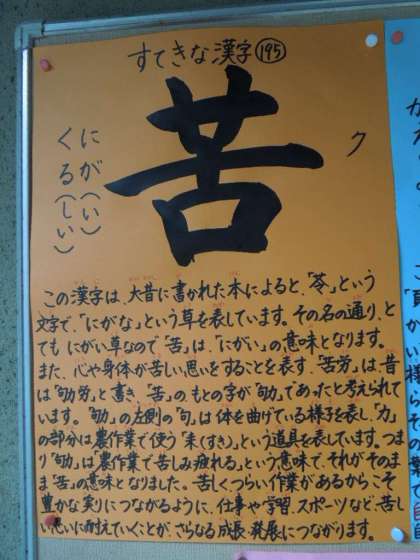 すてきな漢字 195
苦
ク
にが(い)
くる(しい)
この漢字は、大昔に書かれた本によると、「苓」という
文字で、「にがな」という草を表しています。その名の通り、と
てもにがい草なので「苦」は、「にがい」の意味となります。
また、心や身体が苦しい思いをすることを表す、「苦労」は、昔
は「劬労」と書き、「苦」のもとの字が「劬」であったと考えられて
います。「劬」の左側の「句」は体を曲げている様子を表し、「力」
の部分は農作業で使う「耒(すき)」という道具を表しています。つま
り「劬」は「農作業で苦しみ疲れる」という意味で、それがそのま
ま「苦」の意味となりました。苦しくつらい作業があるからこそ
豊かな実りにつながるように、仕事や学習、スポーツなど、苦し
い思いに耐えていくことが、さらなる成長・発展につながります。